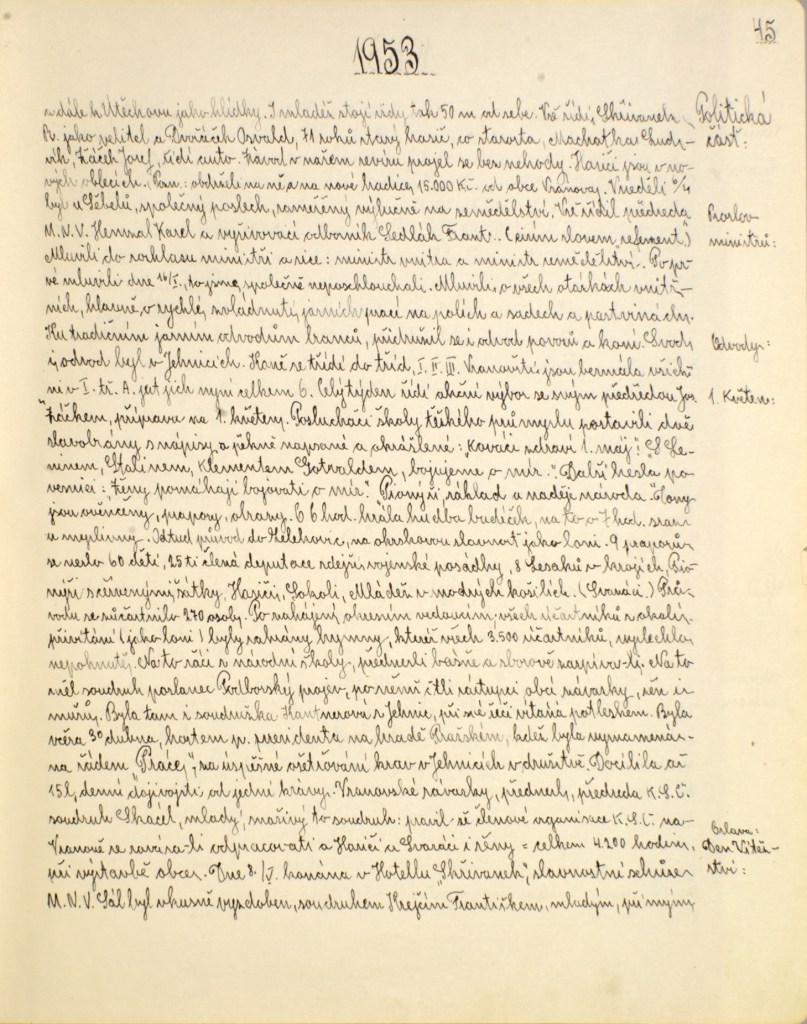 45
1953
a dále k Útěchovu jako hlídky. I mládež stojí všdy tak 50 m od sebe. Vše řídí, Skřivánek
R. jako velitel a Dvořáček Osvald, 71 roků starý hasič, co starosta, Machatka Lud-
vík, Žáček Josef, řídí auto. Závod v našem revíru projel se bez nehody. Hasiči jsou v no-
vých oblecích. (Pozn: obdrželi na ně a na nové hadice, 15.000 Kč. od obce Vranova). V neděli
byl u Šebelů, společný poslech, zaměřený výlučně na zemědělství. Vše řídil předseda
M.N.V. Hemzal Karel a vyživovací odborník Sedlák Frant.. (jiným slovem, referent.)
Mluvili do rozhlasu ministři a sice: ministr vnitra a ministr zemědělství. Po pr-
vé mluvili dne 16/I., to jsme společně neposlouchali. Mluvili, o všech otázkách vnitř-
ních, hlavně, o rychlé, zvládnutí, jarních prací na polích a sadech a pastvinách.
Ku tradičním jarním odvodům branců, přidružil se i odvod povozů a koní. Svod
i odvod byl v Jehnicích. Koně se třídí do tříd, I. II. III. Vranovští jsou bezmála všich-
ni v I. tř. A. jest jich nyní celkem 6. Celý týden řídí akční výbor se svým předsedou Jos.
Žáčkem, přípravu na 1. květen. Posluchači školy těžkého průmyslu postavili dvě
slavobrány s nápisy, a pěkně napsané a okrášlené: "Kováci zdraví 1. máj". S Le-
ninem, Stalinem, Klementem Gotwaldem, bojujeme o mír.". Další hesla po
vesnici: "Ženy pomáhají bojovati o mír". Pionýři, základ a naděje národa".
jsou ověnčeny, prapory, obrazy. O 6 hod. hrála hudba budíček, na to v 7 hod. sraz
u myslivny. Odtud průvod do Želešovic, na okrskovou slavnost jako loni. 9 praporů
se neslo 60 dětí, 25ti členná deputace zdejší vojenské posádky, 8 Lesáků v krojích, Pio-
nýři s červenými šátky, Hasiči, Sokoli, Mládež v modrých košilích. (Svazáci.) Prů-
vodu se zúčastnilo 270 osoby. Po zahájení, okresním vedoucím, všech účastníků z okolí,
přivítání (jako loni) byly zahrány hymny, které všech 3.500 účastníků, vyslechlo
nepohnutě. Na to žáci z národní školy, přednesli básně a sborově zazpíva-li. Na to
měl soudruh poslanec Podborský projev, po něm čtli zástupci obcí závazky, žen i
mužů. Byla tam i soudružka Kantnerová z Jehnic, při své řeči vítaná potleskem. Byla
včera 30 dubna, hostem p. presidenta na hradě Pražském, kdež byla vyznamená-
na řádem "Práce", za úspěšné ošetřování krav v Jehnicích v družstvě. Docílila až
15 l, denní "dojivosti od jedné krávy. Vranovské závazky, přednesl, předseda K.S.Č.
soudruh Skácel, mladý, snaživý to soudruh: pravil že členové organisace K.S.Č. na
Vranově se zaváza-li odpracovati a Hasiči a Svazáci i ženy = celkem 4200 hodin,
při výstavbě obce. Dne 8./V. konána v Hotellu "Skřivánek", slavnostní schůze
M.N.V. Sál byl vkusně vyzdoben, soudruhem Krejčím Františkem, mladým, při mým
Politická
část:
Proslov
ministrů:
Odvody:
1. Květen:
Oslava:
Den Vítěz-
ství: